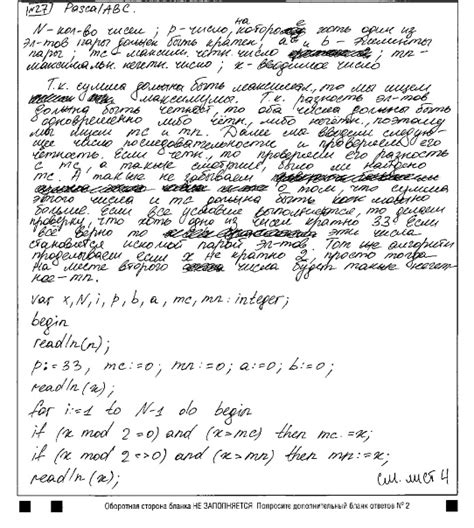 №27) PascalABC.
N - кол-во чисел; p - число, на которое хоть один из
эл-тов пары должен быть кратен; a и b - элементы
пары; mc - максим. четн. число; mn -
максимальн. нечетн. число; x - вводимое число
Т.к. сумма должна быть максимальн, то мы ищем
максимумы. Т.к. разность эл-тов
должна быть четной, то оба числа должны быть
одновременно либо четн, либо нечетн, поэтому
мы ищем mc и mn. Далее мы вводим следую-
щее число последовательности и проверяем его
четность. Если четн, то проверяем его разность
с mc, а также смотрим, было ли найдено
mc. А также не забываем
о том, что сумма
этого числа и mc должна быть как можно
больше. Если все условия выполняются, то делаем
проверку, что хоть одно из чисел кратно 33. Если
все верно то эти числа
становятся искомой парой эл-тов. Тот же алгоритм
проделываем если x не кратно 2, просто тогда
на месте второго числа будет также нечет-
ное - mn.
Var x, N, i, p, b, a, mc, mn: integer;
begin
readln(n);
p:=33, mc:=0; mn:=0; a:=0; b:=0;
readln(x);
for i:=1 to N-1 do begin
if (x mod 2=0) and (x>mc) then mc:=x;
if (x mod 2<>0) and (x>mn) then mn:=x;
readln(x);
см. лист 4
Оборотная сторона бланка НЕ ЗАПОЛНЯЕТСЯ. Попросите дополнительный бланк ответов № 2